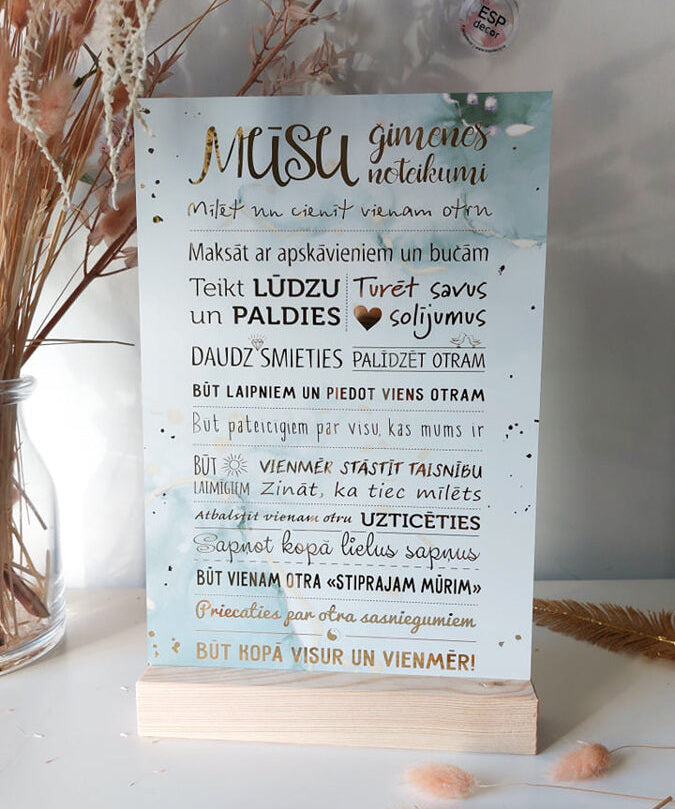 ESP
decor
MŪSU ģimenes
noteikumi
Mīlēt un cienīt vienam otru
Maksāt ar apskāvieniem un bučām
Teikt LŪDZU
un PALDIES
Turēt savus
solījumus
DAUDZ SMIETIES
PALĪDZĒT OTRAM
BŪT LAIPNIEM UN PIEDOT VIENS OTRAM
Būt pateicīgiem par visu, kas mums ir
BŪT
LAIMĪGIEM
VIENMĒR STĀSTĪT TAISNĪBU
Zināt, ka tiec mīlēts
Atbalstīt vienam otru UZTICĒTIES
Sapņot kopā lielus sapņus
BŪT VIENAM OTRA «STIPRAJAM MŪRIM»
Priecāties par otra sasniegumiem
BŪT KOPĀ VISUR UN VIENMĒR!